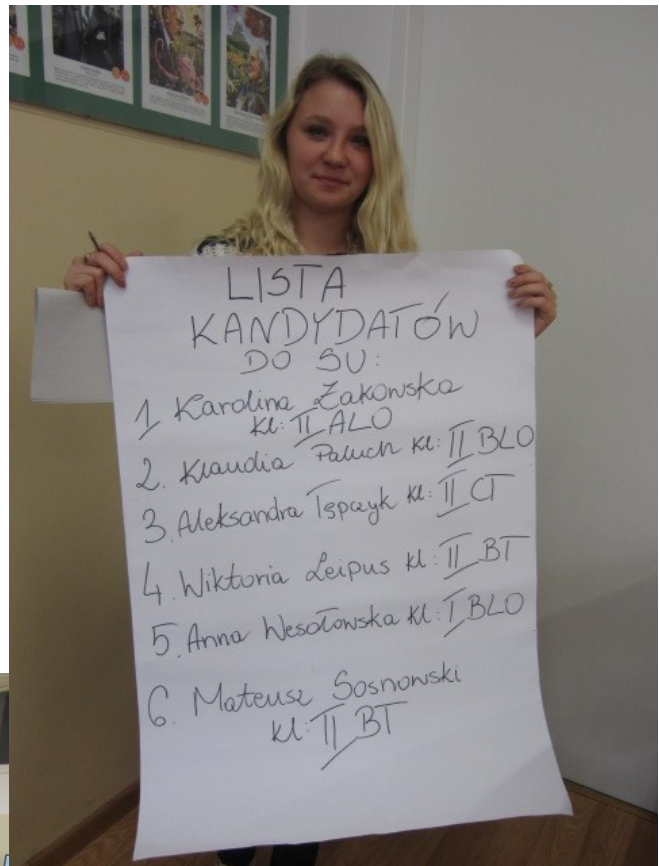 LISTA
KANDYDATÓW
DO SU:
1 Karolina Żakowska
kl: II ALO
2. Klaudia Paluch kl: II BLO
3. Aleksandra Tępczyk kl: II CT
4. Wiktoria Leipus kl: II BT
5. Anna Wesołowska kl: I BLO
6. Mateusz Sosnowski
kl: II BT